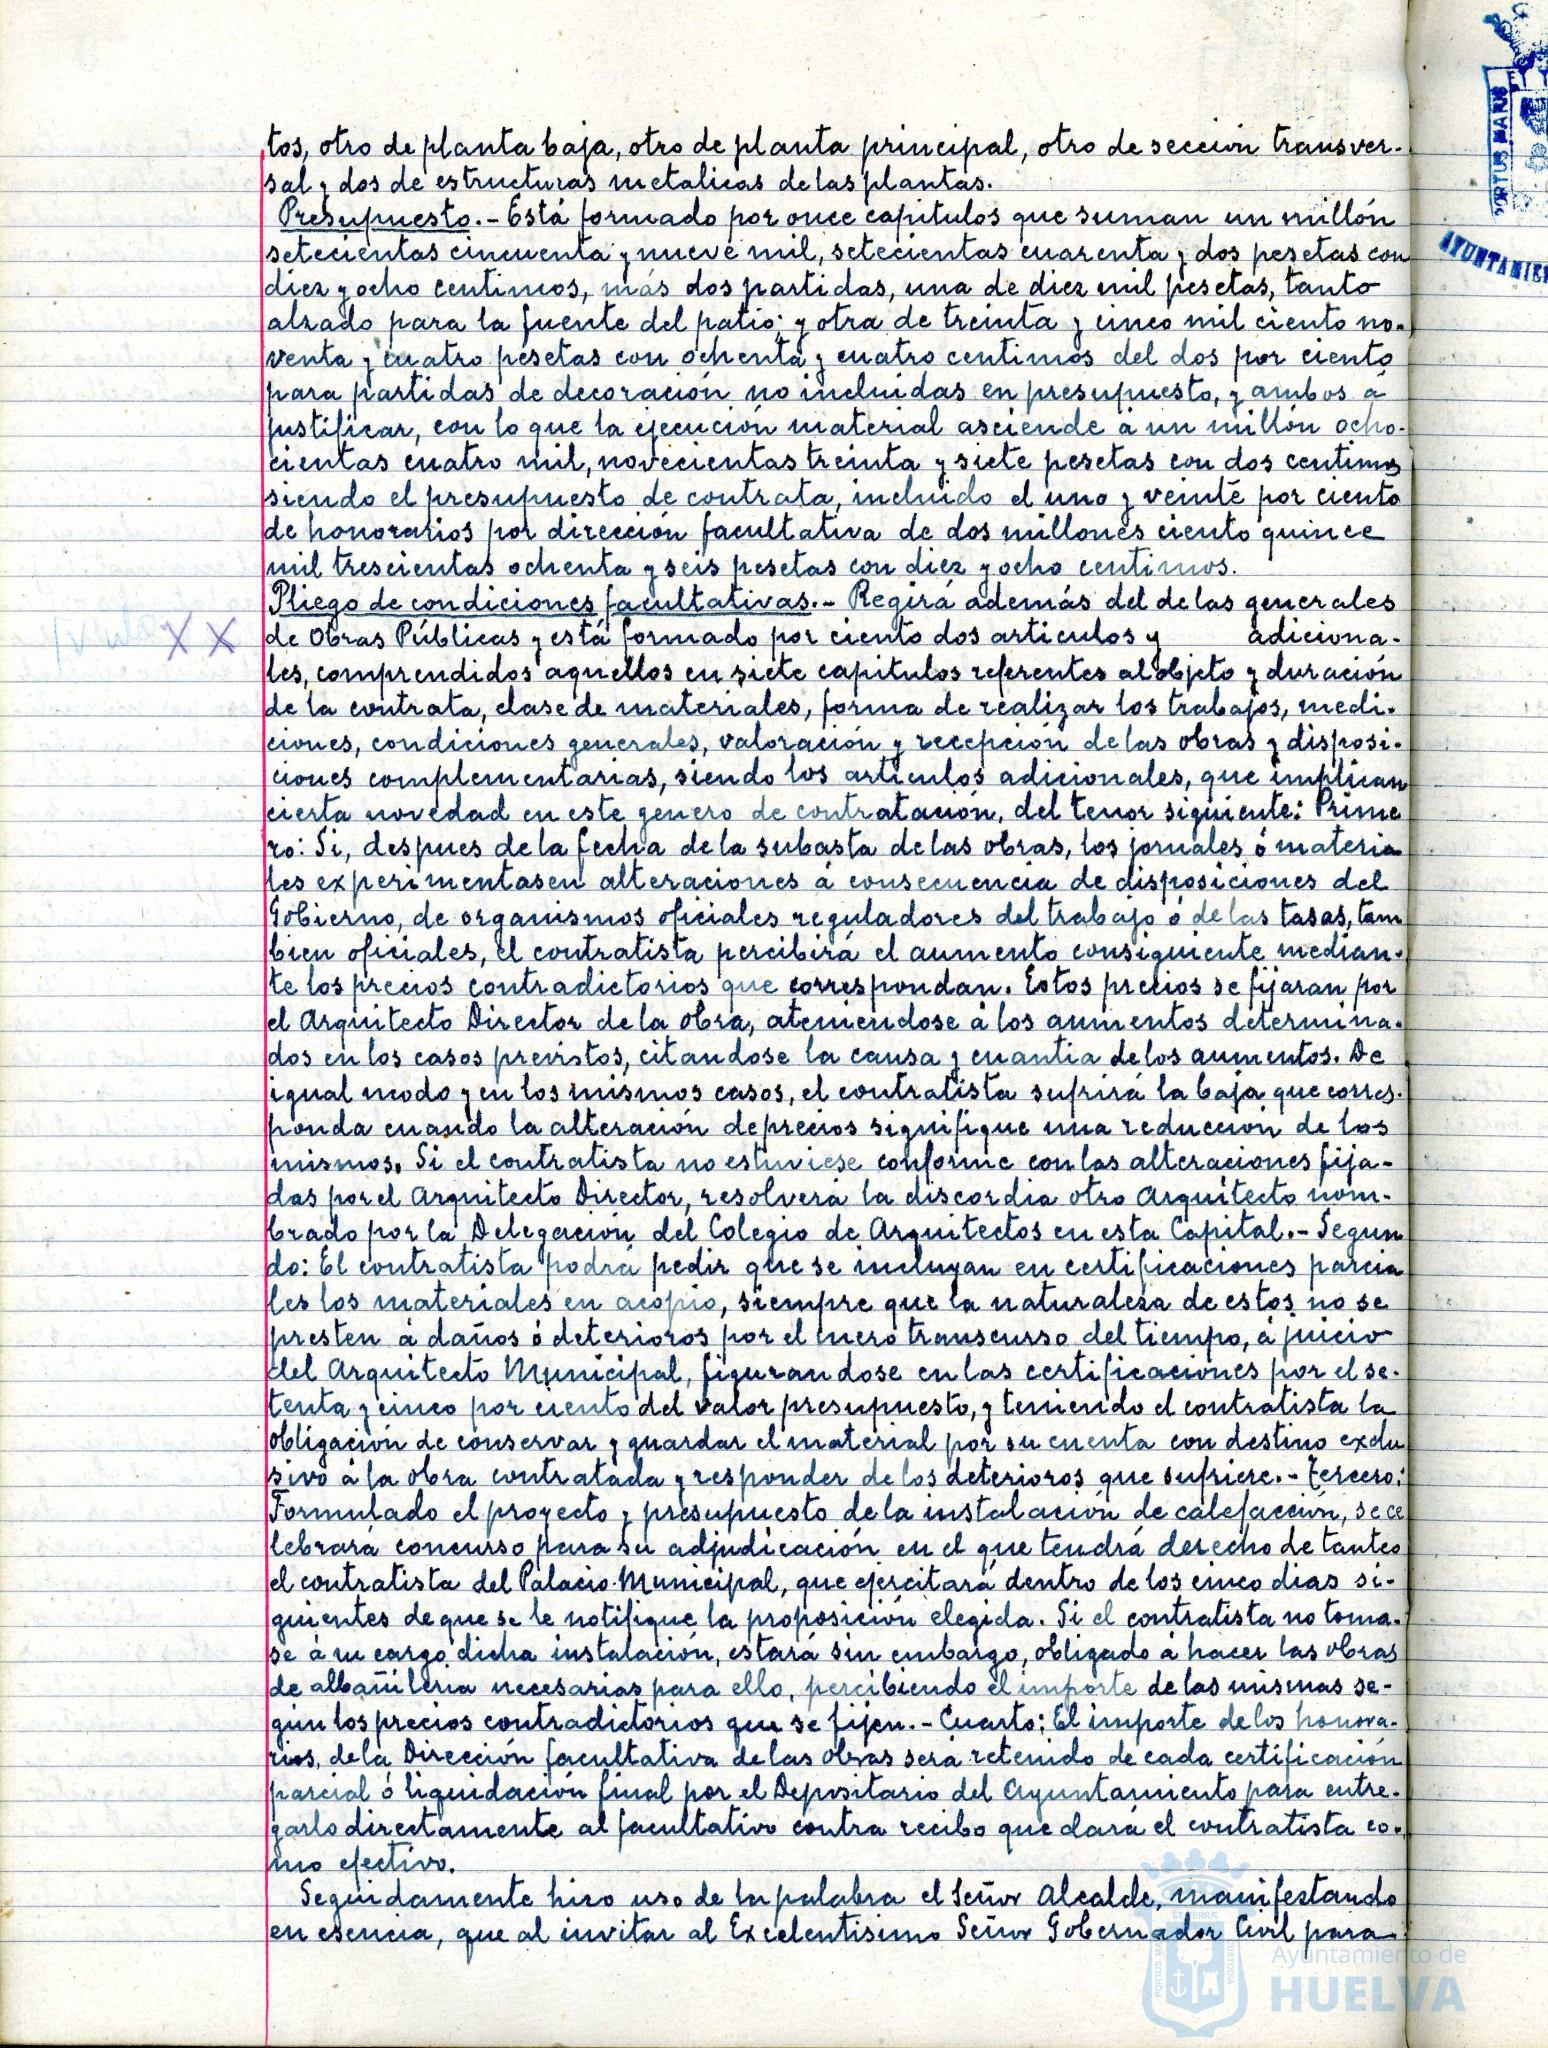 tos, otro de planta baja, otro de planta principal, otro de seccion transver-
sal y dos de estructuras metalicas de las plantas.
Presupuesto.- Está formado por once capitulos que suman un millón
setecientas cincuenta y nueve mil, setecientas cuarenta y dos pesetas con
diez y ocho centimos, más dos partidas, una de diez mil pesetas, tanto
alzado para la fuente del patio; y otra de treinta y cinco mil ciento no-
venta y cuatro pesetas con ochenta y cuatro centimos del dos por ciento
para partidas de decoración no incluidas en presupuesto, y ambos á
justificar, con lo que la ejecución material asciende á un millón ocho-
cientas cuatro mil, novecientas treinta y siete pesetas con dos centimos
siendo el presupuesto de contrata, incluido el uno y veinte por ciento
de honorarios por dirección facultativa de dos millones ciento quince
mil trescientas ochenta y seis pesetas con diez y ocho centimos.
Pliego de condiciones facultativas.- Regirá además del de las generales
X X de Obras Públicas y está formado por ciento dos articulos y adiciona-
les, comprendidos aquellos en siete capitulos referentes al objeto y duración
de la contrata, clase de materiales, forma de realizar los trabajos, medi-
ciones, condiciones generales, valoración y recepción de las obras y disposi-
ciones complementarias, siendo los articulos adicionales, que implican
cierta novedad en este genero de contratación, del tenor siguiente: Prime
ro: Si, despues de la fecha de la subasta de las obras, los jornales ó materia
les experimentasen alteraciones á consecuencia de disposiciones del
Gobierno, de organismos oficiales reguladores del trabajo ó de las tasas, tam
bien oficiales, el contratista percibirá el aumento consiguiente median-
te los precios contradictorios que correspondan. Estos precios se fijaran por
el Arquitecto Director de la obra, ateniendose á los aumentos determina-
dos en los casos previstos, citandose la causa y cuantia de los aumentos. De
igual modo y en los mismos casos, el contratista sufrirá la baja que corres-
ponda cuando la alteración de precios signifique una reducción de los
mismos. Si el contratista no estuviese conforme con las alteraciones fija-
das por el Arquitecto Director, resolverá la discordia otro Arquitecto nom-
brado por la Delegación del Colegio de Arquitectos en esta Capital.- Segun
do: El contratista podrá pedir que se incluyan en certificaciones parcia
les los materiales en acopio, siempre que la naturaleza de estos no se
presten á daños ó deterioros por el mero transcurso del tiempo, á juicio
del Arquitecto Municipal, figurandose en las certificaciones por el se-
tenta y cinco por ciento del valor presupuesto, y teniendo el contratista la
obligación de conservar y guardar el material por su cuenta con destino exclu
sivo á la obra contratada y responder de los deterioros que sufriere.- Tercero:
Formulado el proyecto y presupuesto de la instalación de calefacción, se ce
lebrará concurso para su adjudicación en el que tendrá derecho de tanteo
el contratista del Palacio Municipal, que ejercitará dentro de los cinco dias si-
guientes de que se le notifique la proposición elegida. Si el contratista no toma-
se á su cargo dicha instalación, estará sin embargo, obligado á hacer las obras
de albañileria necesarias para ello, percibiendo el importe de las mismas se-
gún los precios contradictorios que se fijen.- Cuarto: El importe de los honora-
rios, de la Dirección facultativa de las obras será retenido de cada certificación
parcial ó liquidación final por el Depositario del Ayuntamiento para entre-
garlo directamente al facultativo contra recibo que dará el contratista co-
mo efectivo.
Seguidamente hizo uso de la palabra el Señor Alcalde, manifestando
en esencia, que al invitar al Excelentisimo Señor Gobernador Civil para
PORTUS MARIS
AYUNTAMIEN
Ayuntamiento de
HUELVA